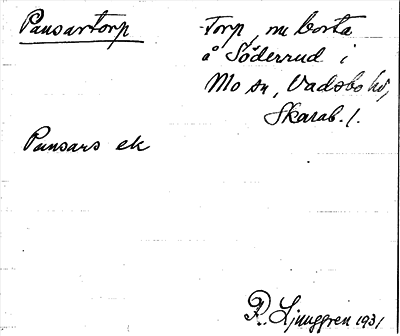 Pansartorp
Torp, nu borta
å Söderrud i
Mo sn, Vadsbo hd,
Skarab. l.
Pansars ek
R. Ljunggren 1931